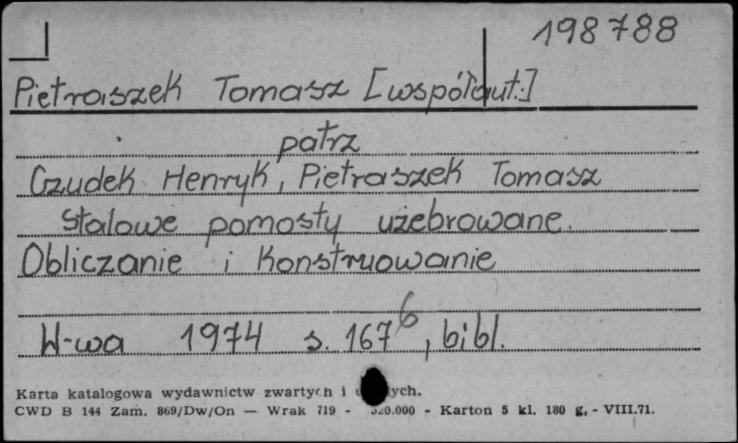 198788
Pietraszek Tomasz [współaut.]
patrz
Czudek Henryk, Pietraszek Tomasz
Stalowe pomosty użebrowane.
Obliczanie i konstruowanie
W-wa 1974 s. 167 6, bibl.
Karta katalogowa wydawnictw zwartych i
CWD B 144 Zam. 869/Dw/On — Wrak 719 - 520.000 - Karton 5 kl. 180 g. - VIII.71.